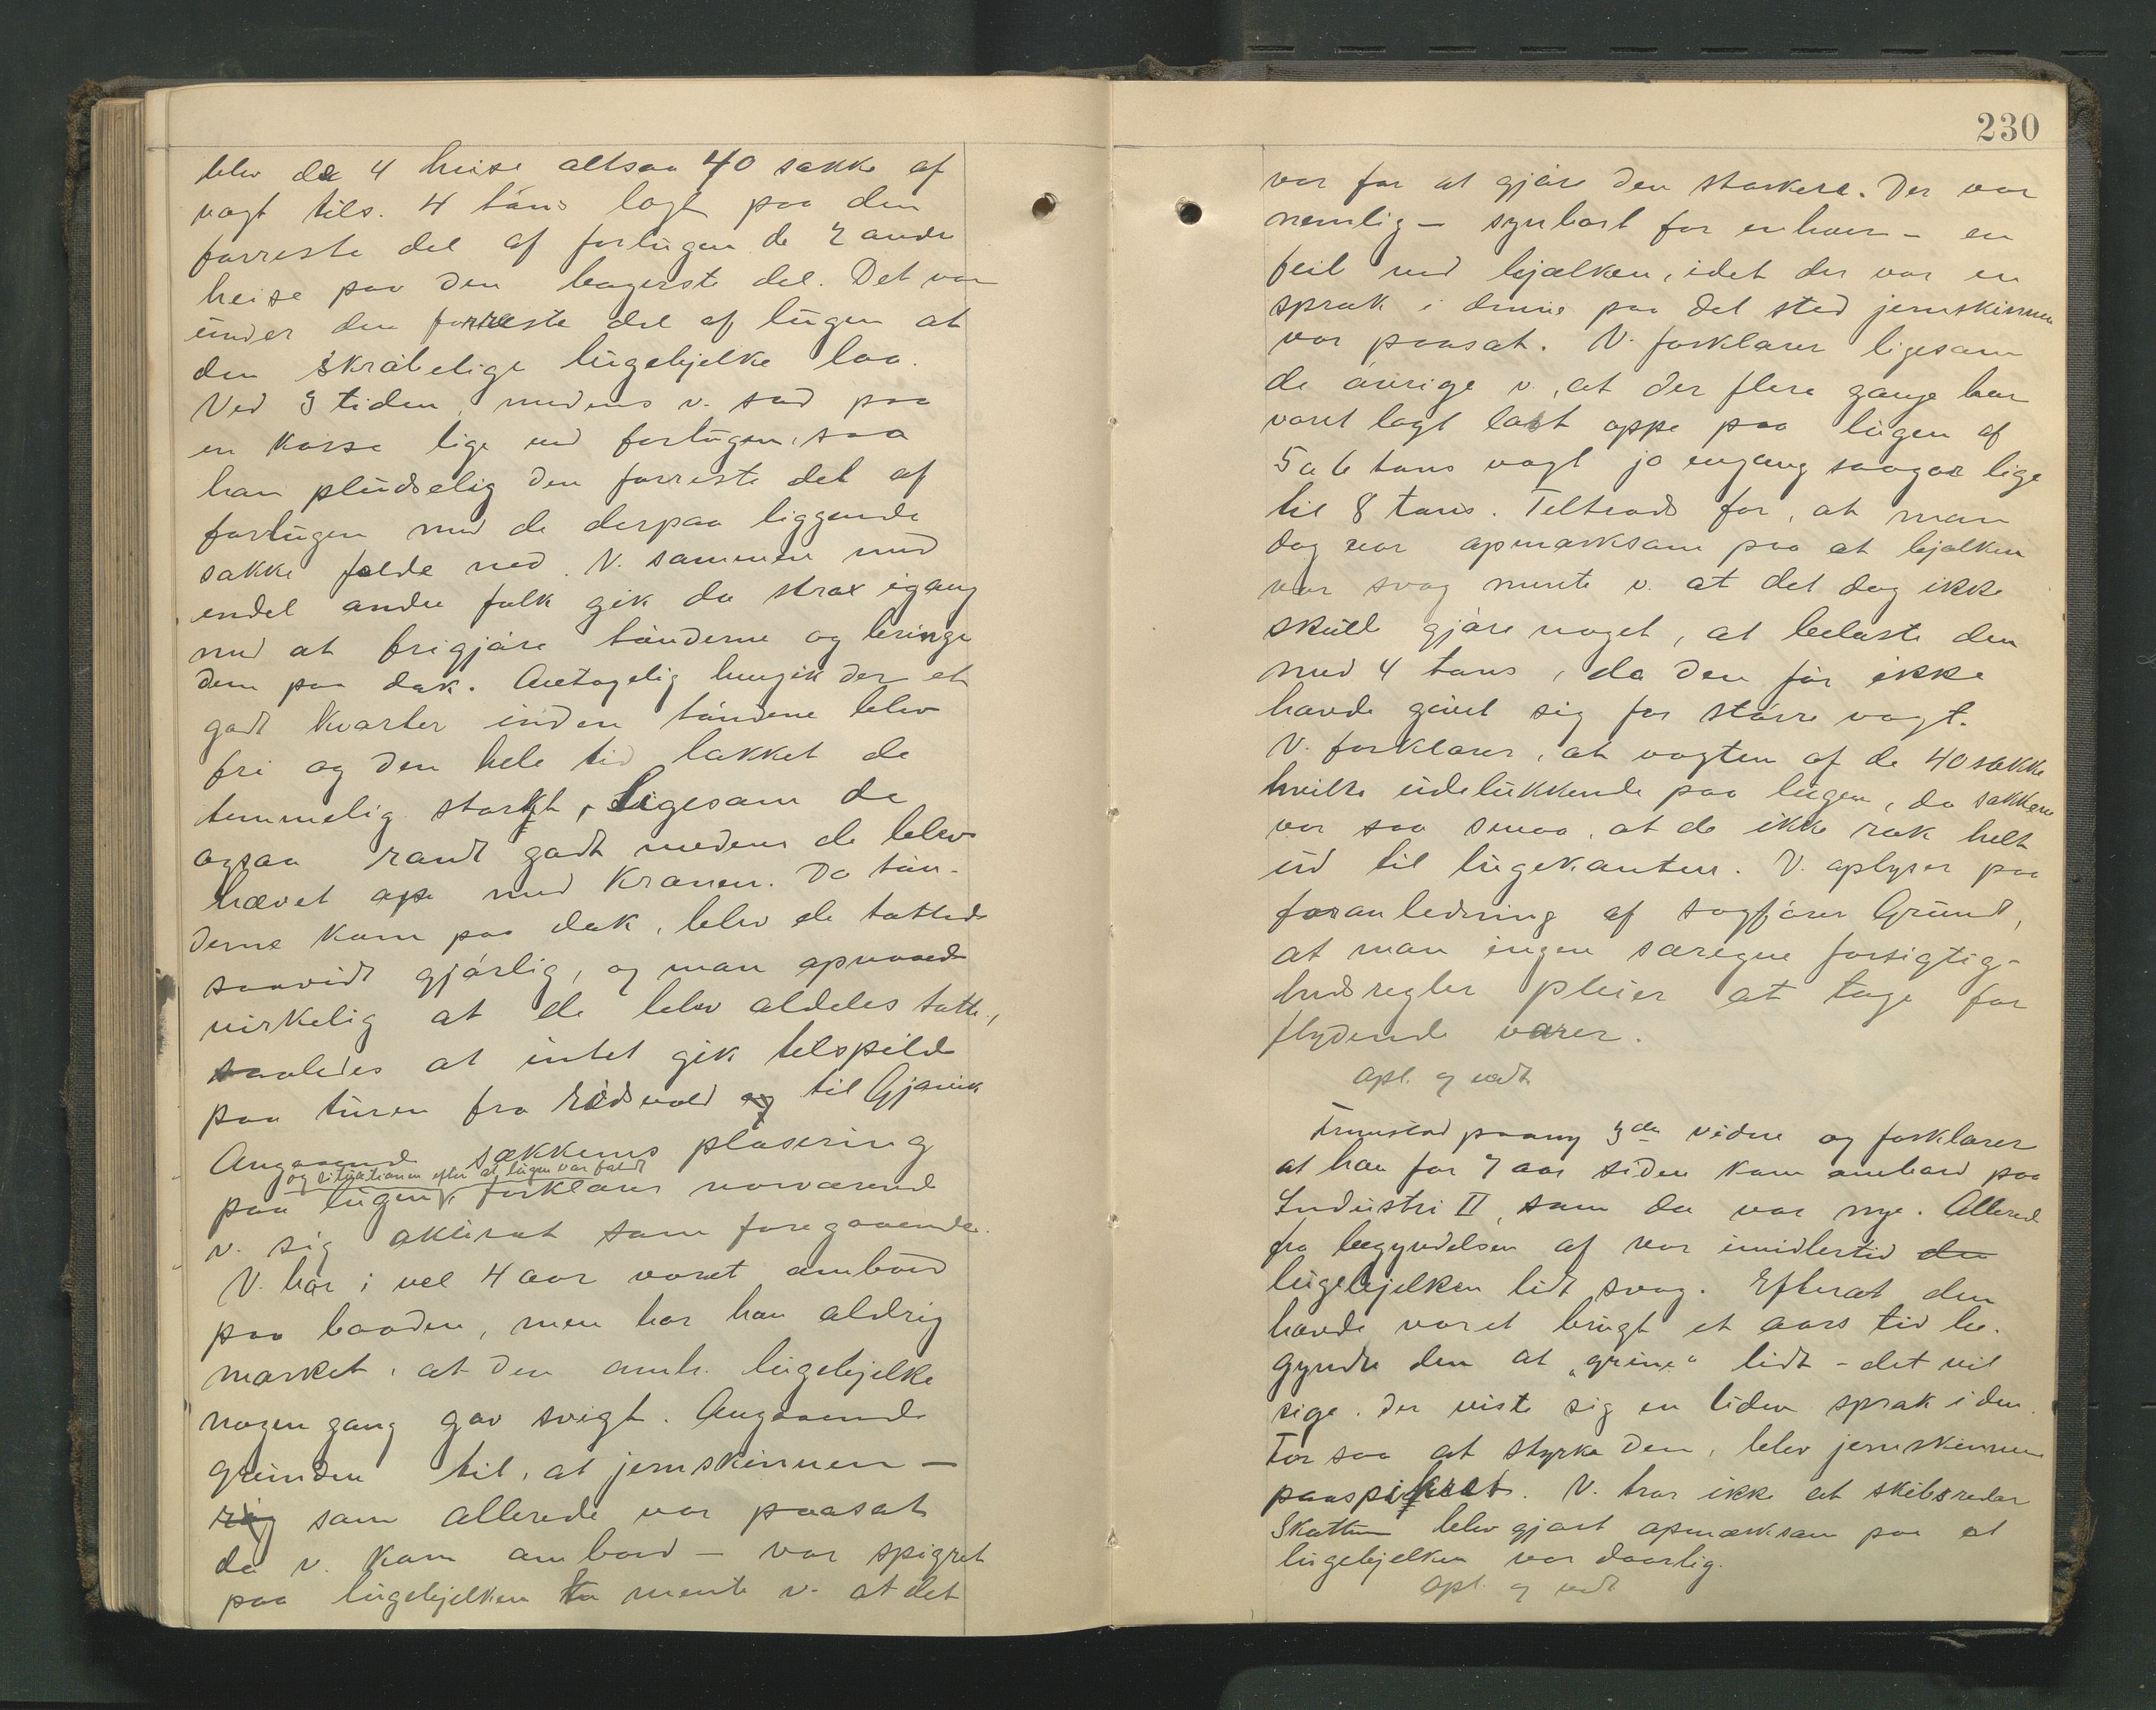 blev de 4 heise altsaa 40 sække af
vægt tils. 4 tons lagt paa den
forreste del af forlugen de 2 andre
heise paa den bagerste del. Det var
under den forreste del af lugen at
den skrøbelige lugebjelke laa.
Ved 3 tiden, medens v. sad paa
en kasse lige ved forlugen, saa
han pludselig den forreste del af
forlugen med de derpaa liggende
sække falde ned. V. sammen med
endel andre folk gik da strax igang
med at frigjøre tønderne og bringe
dem paa dæk. Antagelig hengik der et
godt kvarter inden tønderne blev
fri og den hele tid lækket de
temmelig stærkt, ligesom de
ogsaa randt godt medens de blev
hævet op med kranen. Da tøn-
derne kom paa dæk, blev de tættede
saavidt gjørlig, og man opnaaede
virkelig at de blev aldeles tætte,
saaledes at intet gik tilspilde
paa turen fra Eidsvold til Gjøvik
Angaaende sækkenes plasering
og situationen efter at lugen var faldt
paa lugen, forklarer nærværende
v. sig akurat som foregaaende.
V. har i vel 4 aar været ombord
paa baaden, men har han aldrig
mærket, at den omh. lugebjelke
nogen gang gav svigt. Angaaende
grunden til, at jernskinnen –
som allerede var paasat
da v. kom ombord – var spigret
paa lugebjelken mente v. at det
230
var for at gjøre den stærkere. Der var
nemlig – synbart for enhver – en
feil ved bjælken, idet der var en
spræk i denne paa det sted jernskinnen
var paasat. V. forklarer ligesom
de øvrige v., at der flere gange har
været lagt last oppe paa lugen af
5 a 6 tons vægt jo engang saagar lige
til 8 tons. Tiltrods for, at man
dog var opmærksom paa at bjælken
var svag mente v. at det dog ikke
skulle gjøre noget, at belaste den
med 4 tons, da den før ikke
havde givet sig for større vægt.
V. forklarer, at vægten af de 40 sække
hvilte udelukkende paa lugen, da sækkene
var saa smaa, at de ikke rak helt
ud til lugekanten. V. oplyser paa
foranledning af sagfører Grund,
at man ingen særegne forsigtig-
hedsregler pleier at tage for
flydende varer.
Opl. og vedt
Fremstod paany 3de vidne og forklarer
at han for 7 aar siden kom ombord paa
Industri II, som da var nye. Allerede
fra begyndelsen af var imidlertid den
lugebjelken lidt svag. Efterat den
havde været brugt et aars tid be-
gyndte den at „grine“ lidt – det vil
sige, der viste sig en liden spræk i den.
For saa at styrke den, blev jernskinnen
paaspikret. V. tror ikke at skibsreder
Skattum blev gjort opmærksom paa at
lugebjelken var daarlig.
Opl. og vedt